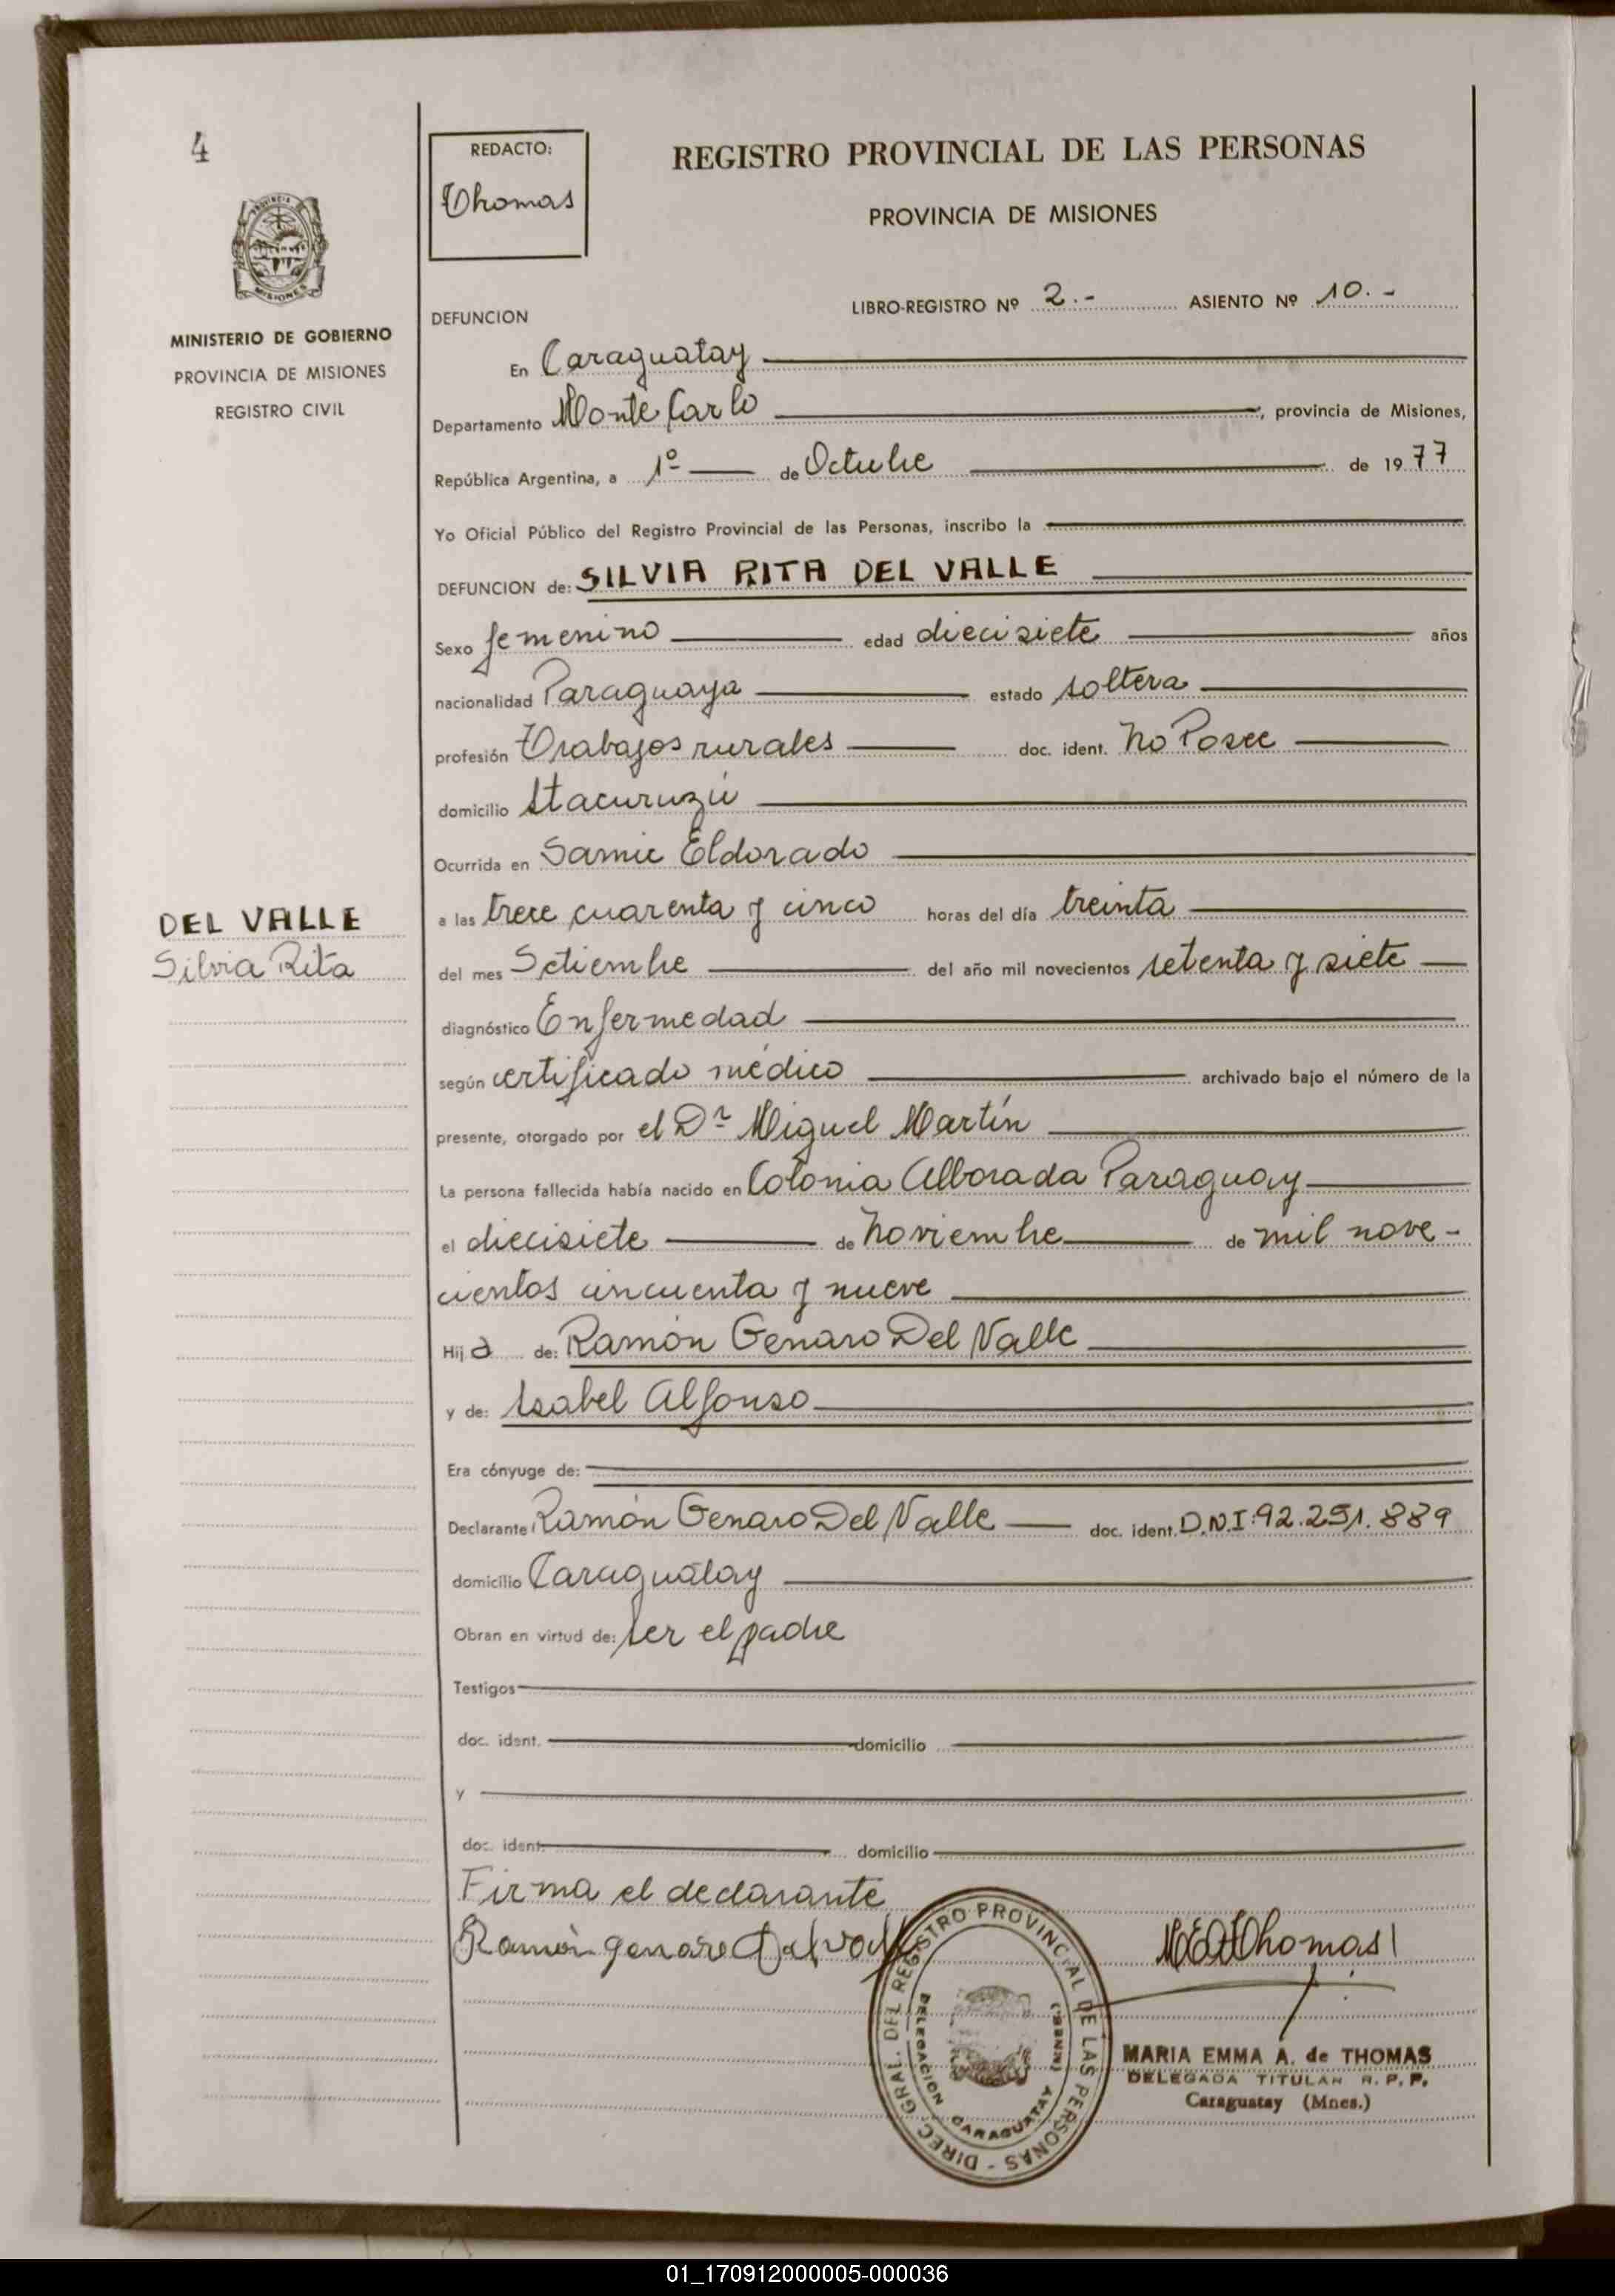 4
PROVINCIA
MISIONES
MINISTERIO DE GOBIERNO
PROVINCIA DE MISIONES
REGISTRO CIVIL
DEL VALLE
Silvia Rita
REDACTO:
Thomas
REGISTRO PROVINCIAL DE LAS PERSONAS
PROVINCIA DE MISIONES
LIBRO-REGISTRO Nº 2.- ASIENTO Nº 10.-
DEFUNCION
En Caraguatay
Departamento Monte Carlo, provincia de Misiones,
República Argentina, a 1º de Octubre de 1977
Yo Oficial Público del Registro Provincial de las Personas, inscribo la
DEFUNCION de: SILVIA RITA DEL VALLE
Sexo femenino edad diecisiete años
nacionalidad Paraguaya estado soltera
profesión Trabajos rurales doc. ident. No Posee
domicilio Itacuruzú
Ocurrida en Samic Eldorado
a las trece cuarenta y cinco horas del día treinta
del mes Setiembre del año mil novecientos setenta y siete
diagnóstico Enfermedad
según certificado médico archivado bajo el número de la
presente, otorgado por el Dr Miguel Martín
La persona fallecida había nacido en Colonia Alborada Paraguay
el diecisiete de Noviembre de mil nove-
cientos cincuenta y nueve
Hija de: Ramón Genaro Del Valle
y de: Isabel Alfonso
Era cónyuge de:
Declarante Ramón Genaro Del Valle doc. ident. D.N.I: 92.251.889
domicilio Caraguatay
Obran en virtud de: ser el padre
Testigos
doc. ident. domicilio
y
doc. ident. domicilio
Firma el declarante
Ramón genaro Del valle
M E A Thomas
DIREC. GRAL. DEL REGISTRO PROVINCIAL DE LAS PERSONAS -
DELEGACION CARAGUATAY (MNES.)
MARIA EMMA A. de THOMAS
DELEGADA TITULAR R. P. P.
Caraguatay (Mnes.)
01_170912000005-000036